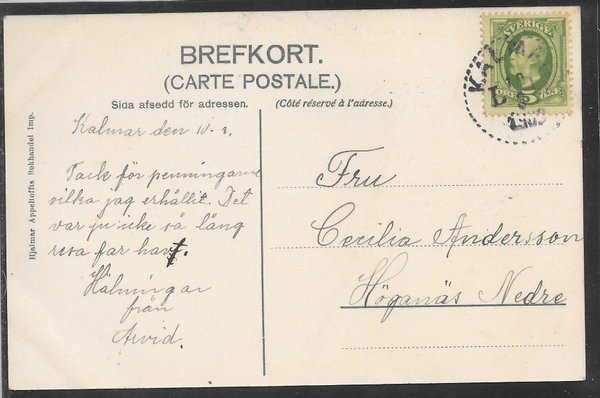 BREFKORT.
(CARTE POSTALE.)
Sida afsedd för adressen.
(Côté réservé à l'adresse.)
SVERIGE
5
ÖRE
KALMAR
Hjalmar Appeltoffts Bokhandel Imp.
Kalmar den 10.3.
Tack för penningarne
vilka jag erhållit. Det
var ju icke så lång
resa far haft.
Hälningar
från
Arvid.
Fru
Cecilia Andersson
Höganäs Nedre